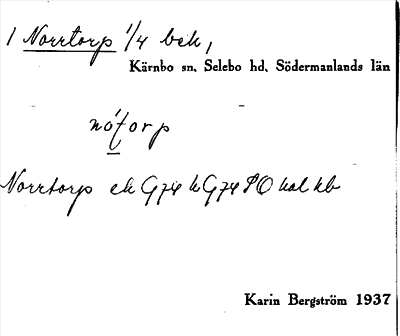 1 Norrtorp 1/4 bek,
Kärnbo sn, Selebo hd, Södermanlands län
nótorp
Norrtorp ek G74 h G74 PO kal kb
Karin Bergström 1937